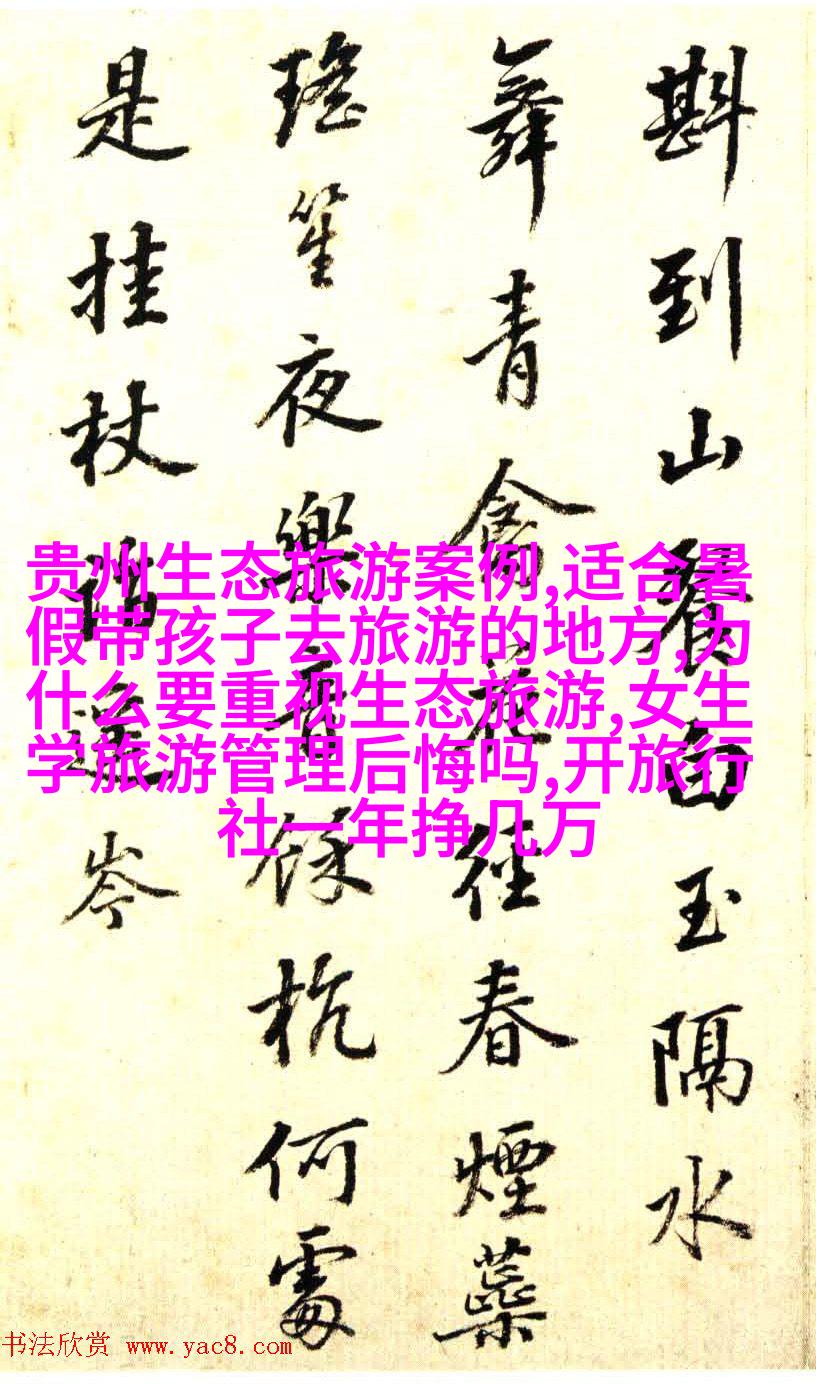 斟到山醪白玉隔水
舞青禽花径春煙蘂
瑤笙夜樂音餘杭何處
是挂杖陽遥岑
贵州生态旅游案例,适合暑
假带孩子去旅游的地方,为
什么要重视生态旅游,女生
学旅游管理后悔吗,开旅行
社一年挣几万
书法欣赏 www.yac8.com